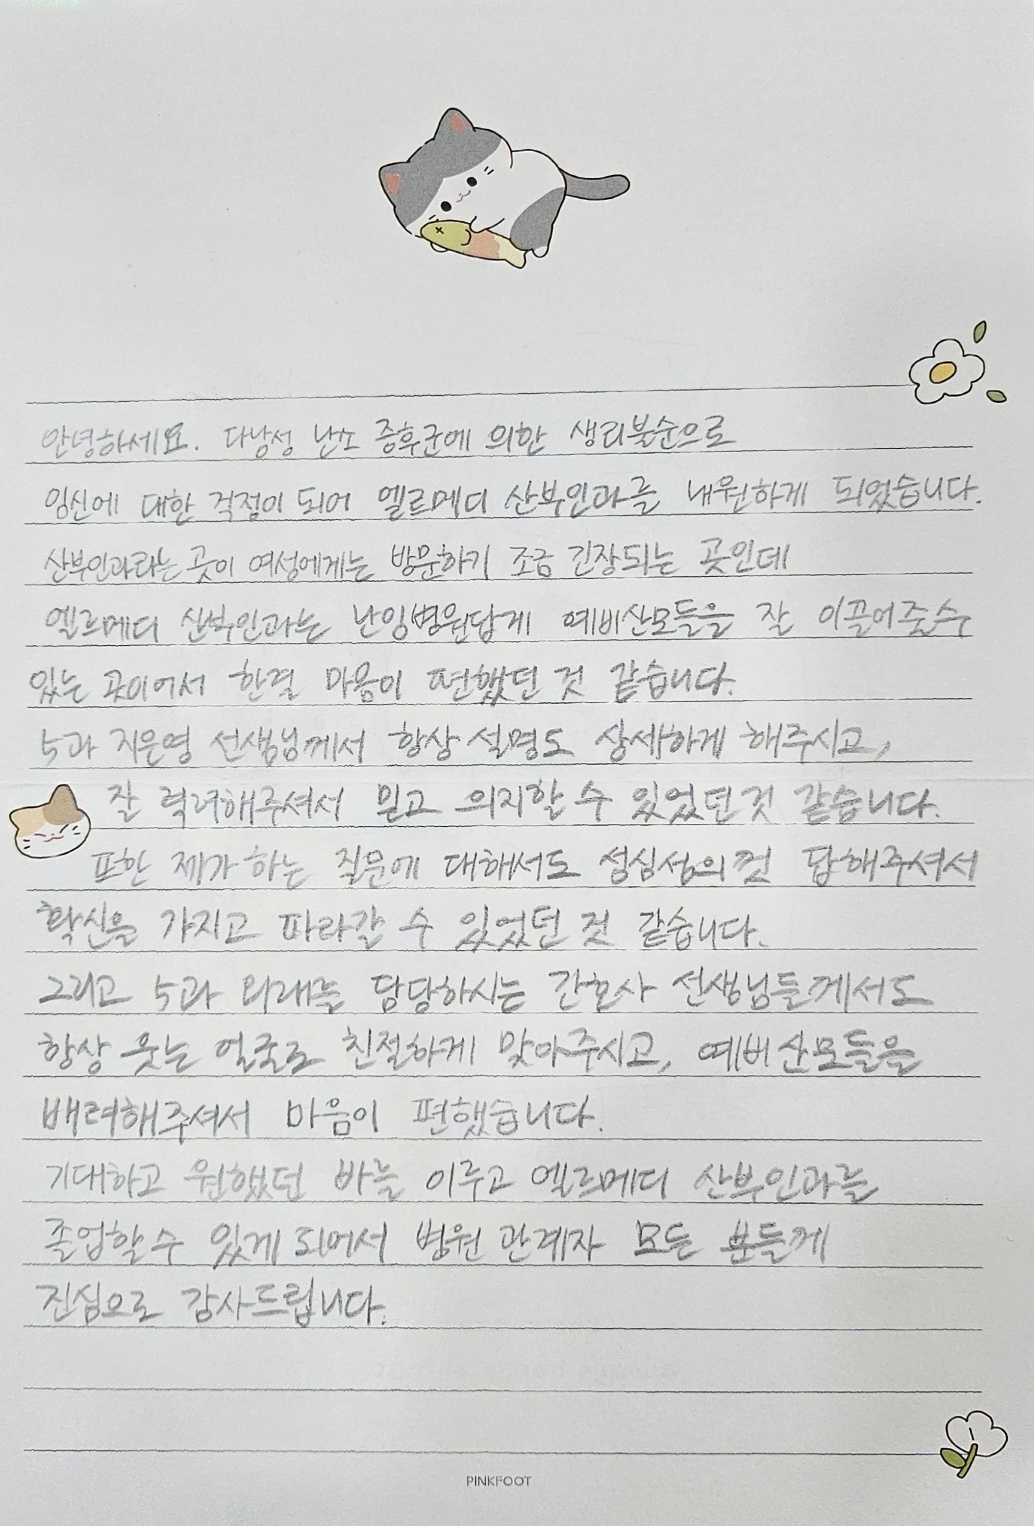 안녕하세요. 다낭성 난소 증후군에 의한 생리불순으로
임신에 대한 걱정이 되어 엘르메디 산부인과를 내원하게 되었습니다.
산부인과라는 곳이 여성에게는 방문하기 조금 긴장되는 곳인데
엘르메디 산부인과는 난임병원답게 예비산모들을 잘 이끌어줄수
있는 곳이어서 한결 마음이 편했던 것 같습니다.
5과 지은영 선생님께서 항상 설명도 상세하게 해주시고,
잘 격려해주셔서 믿고 의지할 수 있었던 것 같습니다.
또한 제가 하는 질문에 대해서도 성심성의껏 답해주셔서
확신을 가지고 따라갈 수 있었던 것 같습니다.
그리고 5과 외래를 담당하시는 간호사 선생님들께서도
항상 웃는 얼굴로 친절하게 맞아주시고, 예비산모들을
배려해주셔서 마음이 편했습니다.
기대하고 원했던 바를 이루고 엘르메디 산부인과를
졸업할수 있게 되어서 병원 관계자 모든 분들께
진심으로 감사드립니다.
PINKFOOT